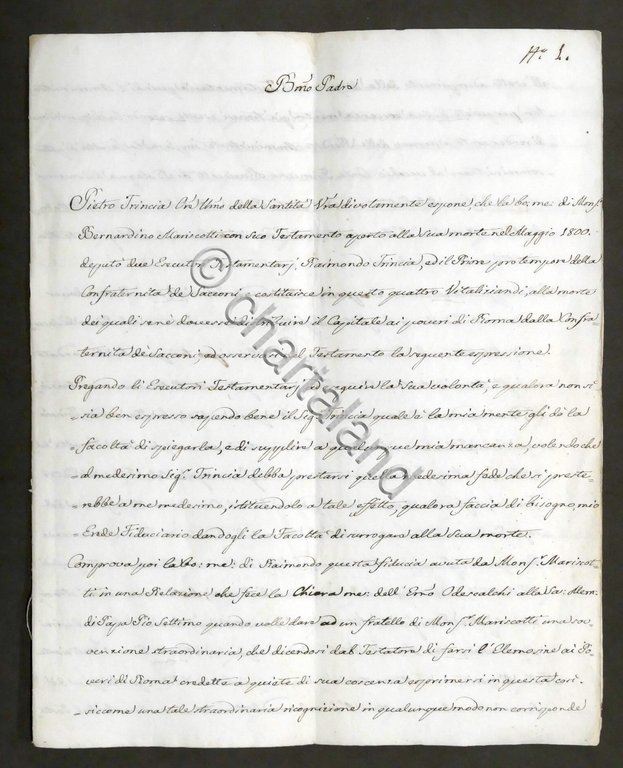 N.º 1.
Bmo Padre
Pietro Trincia Ore Umo della Santità Vra divotamente espone, che la bo: me: di Monsr.
Bernardino Mariscotti con suo Testamento aperto alla sua morte nel Maggio 1800.
deputò due Esecutori Testamentarj, Raimondo Trincia, ed il Priore pro tempore della
Confraternita de' Sacconi, e costituisce in questo quattro Vitaliziandi, alla morte
dei quali se ne dovesse distribuire il Capitale ai poveri di Roma dalla Confra=
ternita de' Sacconi; ed osservasi nel Testamento la seguente espressione.
Pregando li Esecutori Testamentarj ad eseguire la sua volontà, e qualora non si
sia ben espresso sapendo bene il Sigr. Trincia quale è la mia mente gli dò la
facoltà di spiegarla, e di supplire a qualunque mia mancanza, volendo che
al medesimo Sigr. Trincia debba prestarsi quella medesima fede che si preste=
=rebbe a me medesimo, istituendolo a tale effetto, qualora faccia di bisogno, mio
Erede Fiduciario dandogli la Facoltà di surrogare alla sua morte.
Comprova poi la bo: me: di Raimondo questa fiducia avuta da Monsr. Mariscot=
ti in una Relazione che fece la Chiara me: dell' Emo Odescalchi alla Sa: Mem:
di Papa Pio Settimo quando volle dare ad un fratello di Monsr. Mariscotti una sov=
venzione straordinaria, che dicendosi dal Testatore di farsi l' Elemosine ai Po=
veri di Roma credette a quiete di sua coscenza esprimersi in questa così.
=siccome una tale straordinaria ricognizione in qualunque modo non corrisponde
© chartaland